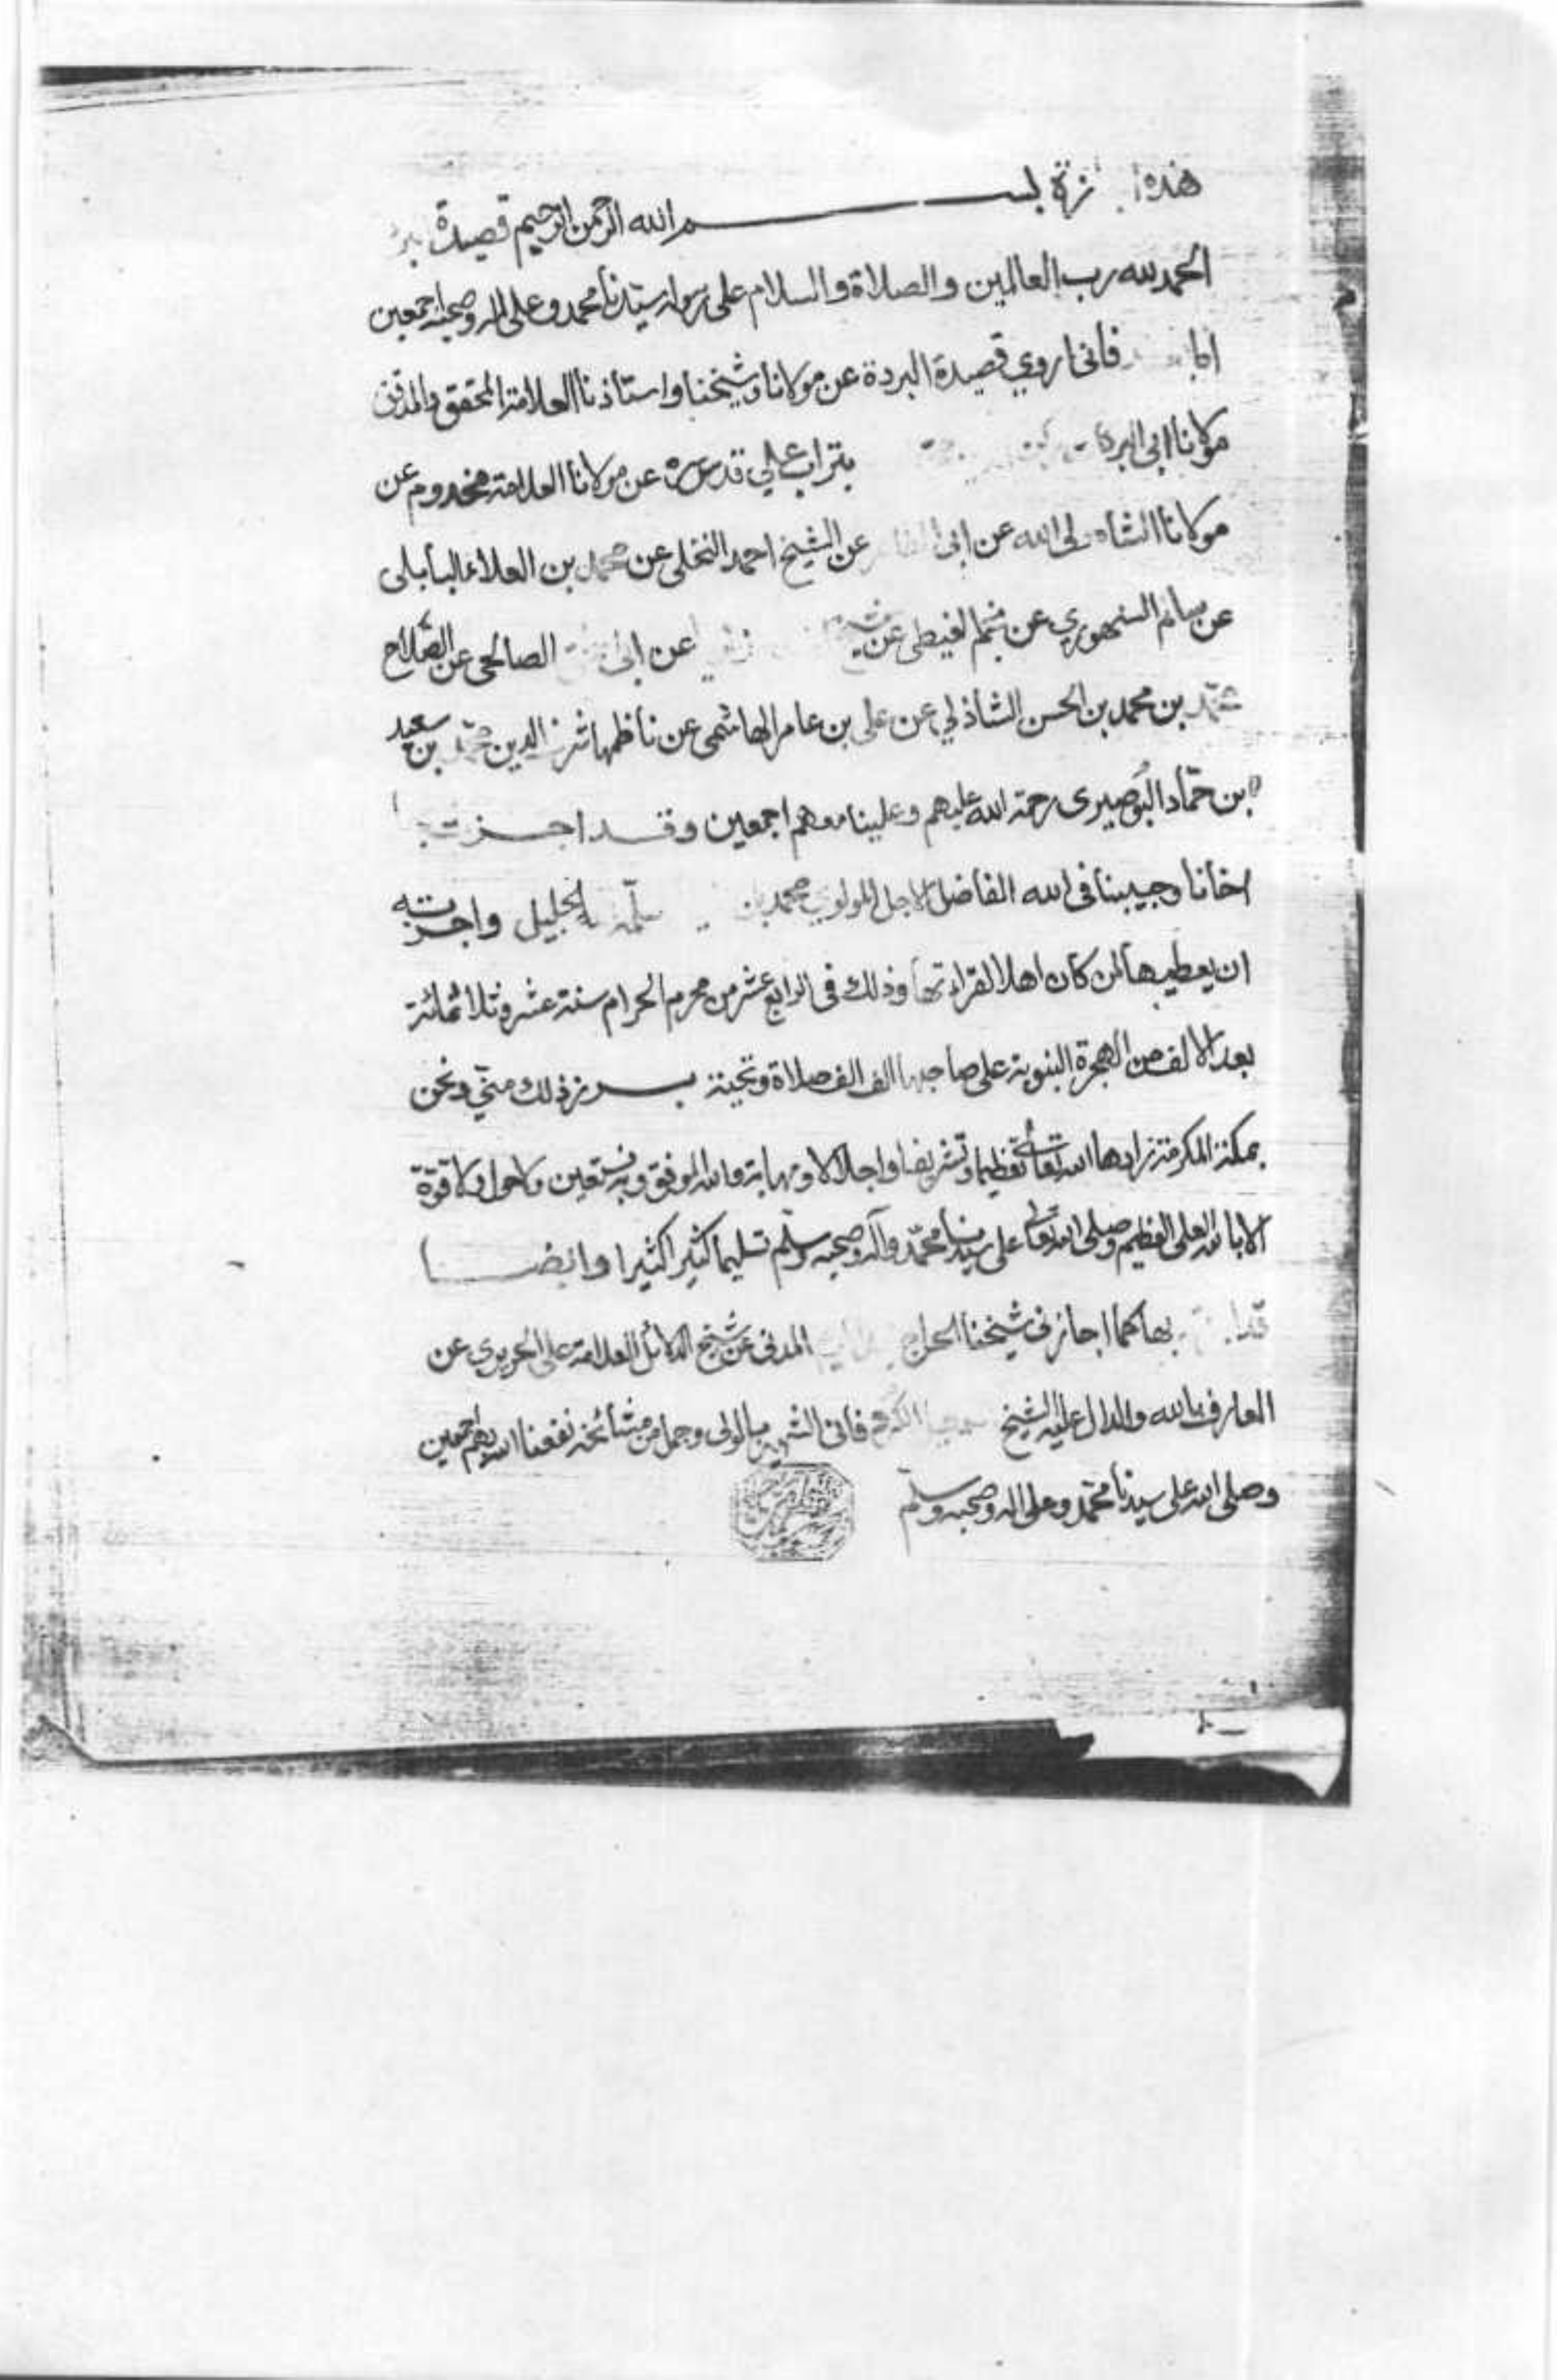 هذه بســـــــــم الله الرحمن الرحيم قصيدة
الحمد لله رب العالمين والصلاة والسلام على رسوله سيدنا محمد وعلى اله وصحبه اجمعين
فانى اروي قصيدة البردة عن مولانا وشيخنا واستاذنا العلامة المحقق والمدقق
مولانا ابى بتراب علي قدس سره عن مولانا العلامة مخدوم عن
مولانا الشاه ولى الله عن ابى عن الشيخ احمد النخلى عن محمد بن العلاء البابلى
عن سالم السنهوري عن نجم الغيطى عن عن ابى الصالحى عن الصلاح
محمد بن محمد بن الحسن الشاذلي عن على بن عامر الهاشمى عن ناظمها شرف الدين محمد بن سعيد
ابن حمّاد البُوصيرى رحمة الله عليهم وعلينا معهم اجمعين وقد اجزت
اخانا وحبيبنا فى الله الفاضل الاجل المولوي محمد سلّمه الجليل واجزته
ان يعطيها لمن كان اهلا لقراءتها وذلك فى الرابع عشر من محرم الحرام سنة عشر وثلاثمائة
بعد الالف من الهجرة النبوية على صاحبها الف الف صلاة وتحية برز ذلك منّي ونحن
بمكة المكرمة زادها الله تعالى تعظيما وتشريفا واجلالا ومهابة والله الموفق وبه نستعين ولا حول ولا قوة
الا بالله العلى العظيم وصلى الله تعالى على سيدنا محمّد وآله وصحبه وسلّم تسليما كثيرا كثيرا وايضا
بها كما اجازنى شيخنا المدنى عن شيخ الدلائل العلامة على الحريرى عن
العارف بالله والدال عليه الشيخ فانى الشهير بالوالى وجمل من مشائخه نفعنا الله بهم اجمعين
وصلى الله على سيدنا محمّد وعلى اله وصحبه وسلّم